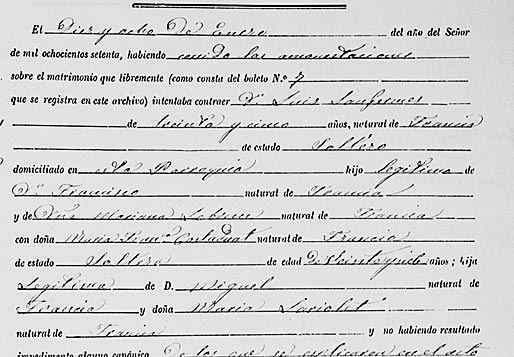 El Diez y ocho De Enero del año del Señor
de mil ochocientos setenta, habiendo corrido las amonestaciones
sobre el matrimonio que libremente (como consta del boleto N.º 7
que se registra en este archivo) intentaba contraer Dⁿ. Luis
de treinta y cinco años, natural de Francia
de estado Soltero
domiciliado en esta Parroquia hijo legitimo de
Dⁿ. Francisco natural de Francia
y de Doña Mariana Lebrun natural de Francia
con doña Maria Franᶜᵃ natural de Francia
de estado Soltera de edad De años; hija
Legitima de D. Miguel natural de
Francia y doña Maria Loriolet
natural de Francia y no habiendo resultado
impedimento alguno canónico De los que se esplicaron en el acto